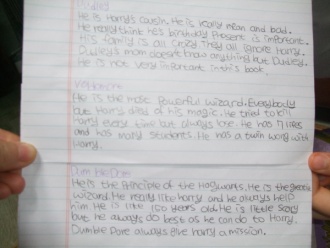 Dudley
He is Harry's cousin. He is really mean and bad.
He really think he's birthday present is important.
His family is all crazy. They all ignore Harry.
Dudley's mom doesn't know anything but Dudley.
He is not very important in this book.
Voldemort
He is the most powerful wizard. Everybody
but Harry afraid of his magic. He tried to kill
Harry every time but always lose. He has 7 lives
and has many students. He has a twin wong with
Harry.
Dumbledore
He is the principle of the Hogwarts. He is the greatest
wizard. He really like Harry and he always help
him. He is like 150 years old. He is little scary
but he always do best as he can do to Harry.
Dumble Dore always give Harry a mission.